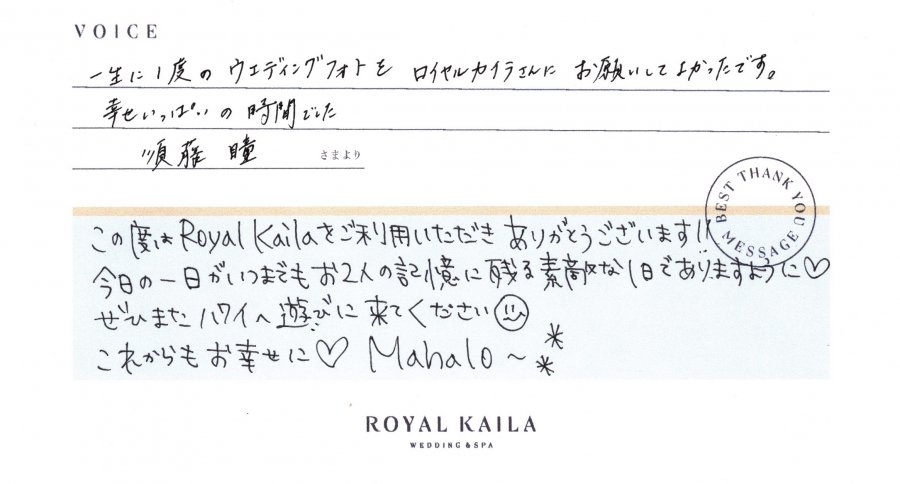 VOICE
一生に1度の ウエディングフォトを ロイヤルカイラさんに お願いしてよかったです。
幸せいっぱいの 時間でした
須藤 瞳 さまより
BEST THANK YOU MESSAGE
この度は Royal Kailaをご利用いただき ありがとうございます!!
今日の一日がいつまでも お2人の記憶に残る素敵な1日でありますように♡
ぜひまた ハワイへ遊びに来てください☺
これからもお幸せに♡ Mahalo~**
ROYAL KAILA
WEDDING & SPA